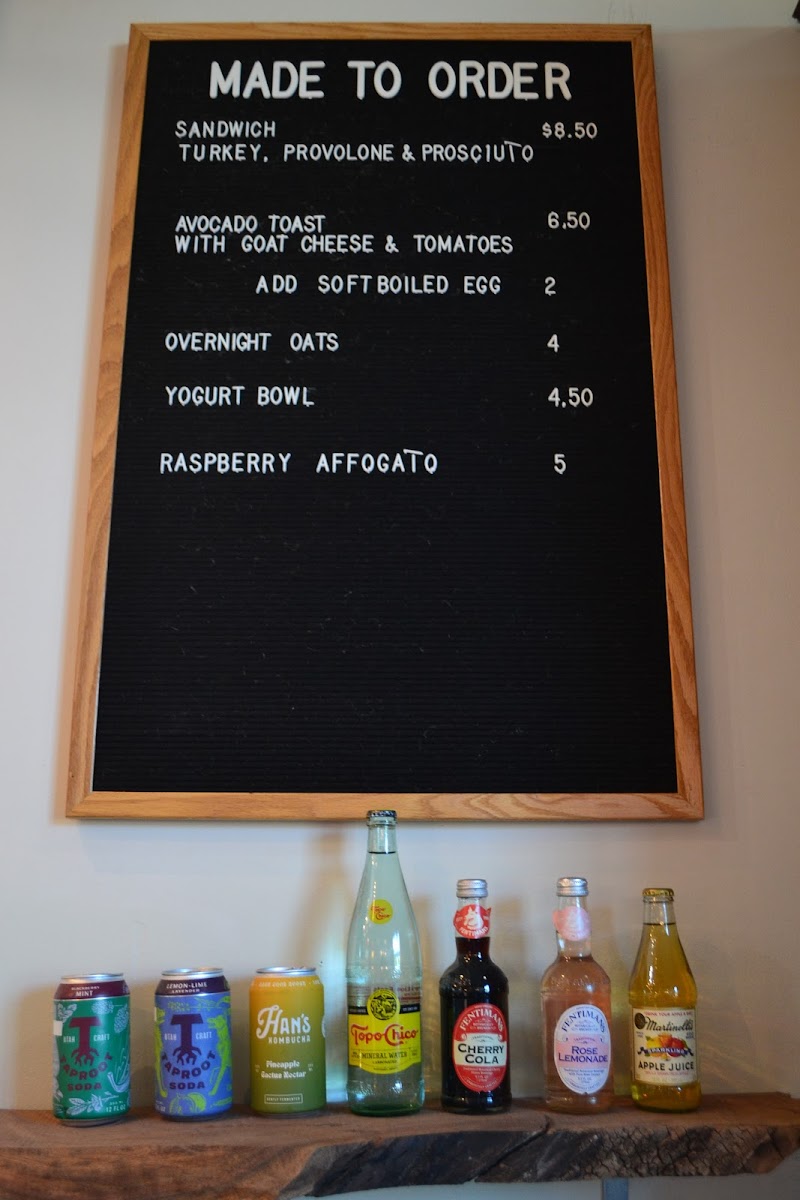 MADE TO ORDER
SANDWICH $8.50
TURKEY, PROVOLONE & PROSCIUTO
AVOCADO TOAST 6.50
WITH GOAT CHEESE & TOMATOES
ADD SOFT BOILED EGG 2
OVERNIGHT OATS 4
YOGURT BOWL 4.50
RASPBERRY AFFOGATO 5
MINT
UTAH CRAFT
TAPROOT
SODA
12 FL OZ
LEMON-LIME
LAVENDER
UTAH CRAFT
TAPROOT
SODA
HAN'S
KOMBUCHA
Pineapple
Cactus Nectar
Topo Chico
Topo Chico
MINERAL WATER
FENTIMANS
FENTIMANS
CHERRY
COLA
FENTIMANS
ROSE
LEMONADE
Martinelli's
SPARKLING
APPLE JUICE